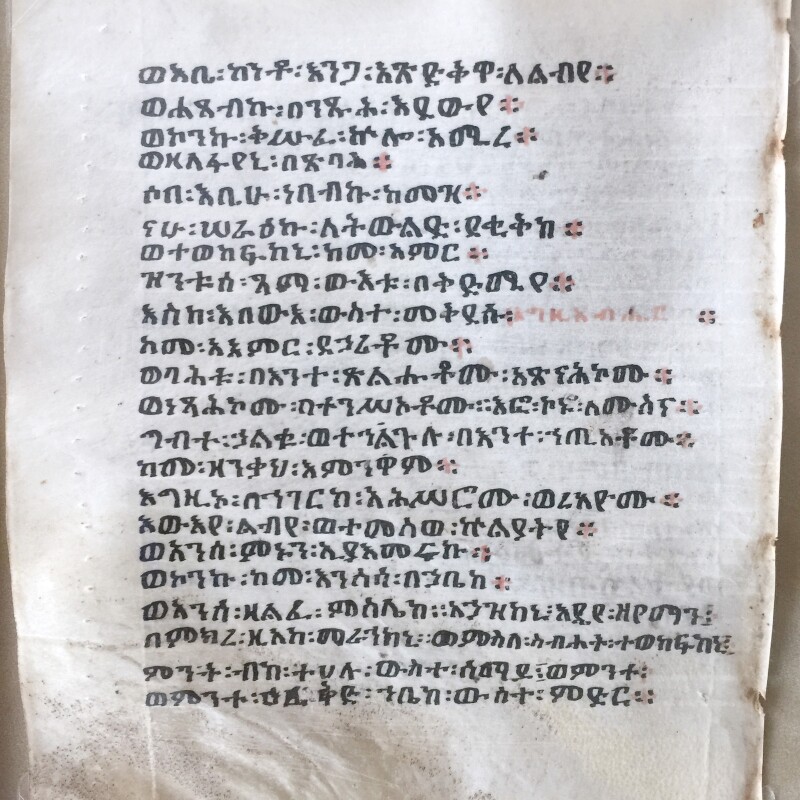 ወእቤ፡ከንቶ፡እንጋ፡አጽደቅዋ፡ለልብየ፨
ወሐጸብኩ፡በንጹሕ፡እደውየ፨
ወኮንኩ፡ቅሡፈ፡ኵሎ፡አሚረ፨
ወዘለፋየኒ፡በጽባሕ፨
ሶበ፡እቤሁ፡ነበብኩ፡ከመዝ፨
ናሁ፡ሠራዕኩ፡ለትውልደ፡ደቂቅከ፨
ወተወከፍከኒ፡ከመ፡አምር፨
ዝንቱሰ፡ጻማ፡ውእቱ፡በቅድሜየ፨
እስከ፡እበውእ፡ውስተ፡መቅደሱ፡እግዚአብሔር፨
ከመ፡አእምር፡ደኃሪቶሙ፨
ወባሕቱ፡በእንተ፡ጽልሑቶሙ፡አጽናሕኮሙ፨
ወነጻሕኮሙ፡በተንሥኦቶሙ፡፡እፎ፡ኮኑ፡ለሙስና፨
ግብተ፡ኃልቁ፡ወተኀልጉሉ፡በእንተ፡ኀጢአቶሙ፨
ከመ፡ዘንቃህ፡እምንዋም፨
እግዚኦ፡በሀገርከ፡አሕሥሮሙ፡ወረአዮሙ፨
እውእየ፡ልብየ፡ወተመሰወ፡ኵልያትየ፨
ወአንሰ፡ምኑን፡ኢያእመርኩ፨
ወኮንኩ፡ከመ፡እንሰሳ፡በኃቤከ፨
ወአንሰ፡ዘልፈ፡ምስሌከ፡፡አኃዝከኒ፡እደየ፡ዘየማን፤
በምክረ፡ዚአከ፡መራኅከኒ፡፡ወምስለ፡ስብሐት፡ተወከፍከኒ፤
ምንት፡ብከ፡ተሀሉ፡ውስተ፡ሰማይ፤ወምንተ፡
ወምንተ፡ፈቅድ፡ኀቤከ፡ውስተ፡ምድር፡፡